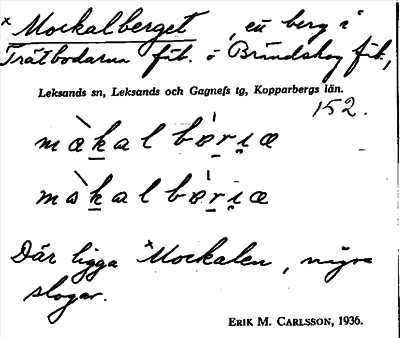 × Mockalberget, en berg i
Trätbodarna fäb. o Brindskog fäb.,
Leksands sn, Leksands och Gagnefs tg, Kopparbergs län.
152.
Där ligga ×Mockalen, några
slogar.
ERIK M. CARLSSON, 1936.